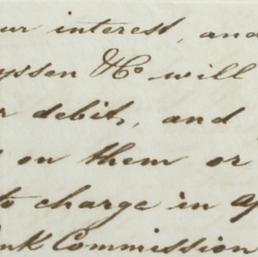 ur interest, and
yssen & Co will
r debit, and
on them or
to charge in a
nk Commission